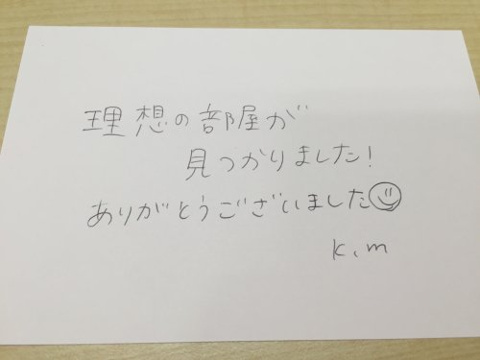 理想の部屋が
見つかりました!
ありがとうございました☺
k.m